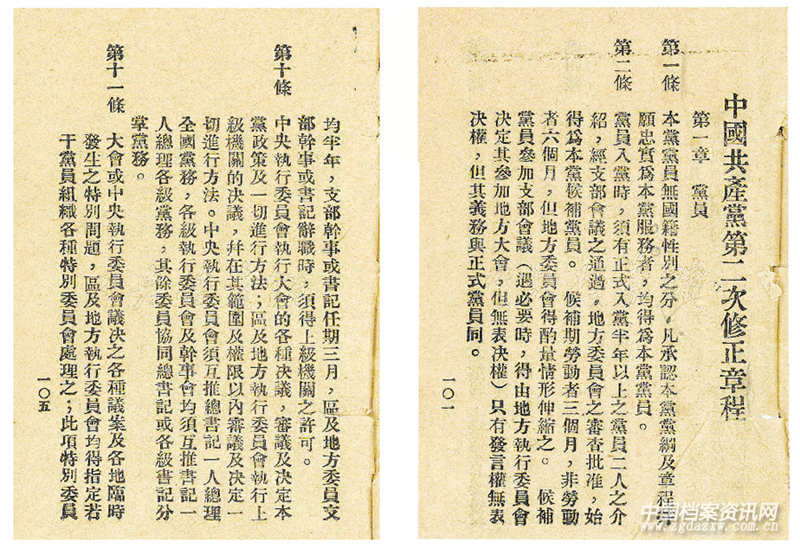 中國共產黨第二次修正章程
第一章 黨員
第一條 本黨黨員無國籍性別之分，凡承認本黨黨綱及章程並
願忠實爲本黨服務者，均得爲本黨黨員。
第二條 黨員入黨時，須有正式入黨半年以上之黨員二人之介
紹，經支部會議之通過，地方委員會之審查批准，始
得爲本黨候補黨員。候補期勞動者三個月，非勞動
者六個月，但地方委員會得酌量情形伸縮之。候補
黨員參加支部會議（遇必要時，得由地方執行委員會
决定其參加地方大會，但無表决權）只有發言權無表
决權，但其義務與正式黨員同。
一〇一
均半年，支部幹事或書記任期三月，區及地方委員支
部幹事或書記辭職時，須得上級機關之許可。
第十條 中央執行委員會執行大會的各種决議，審議及决定本
黨政策及一切進行方法；區及地方執行委員會執行上
級機關的决議，幷在其範圍及權限以內審議及决定一
切進行方法。中央執行委員會須互推總書記一人總理
全國黨務，各級執行委員會及幹事會均須互推書記一
人總理各級黨務，其餘委員協同總書記或各級書記分
掌黨務。
第十一條 大會或中央執行委員會議決之各種議案及各地臨時
發生之特別問題，區及地方執行委員會均得指定若
干黨員組織各種特別委員會處理之；此項特別委員
一〇五
中国档案资讯网
www.zgdazxw.com.cn